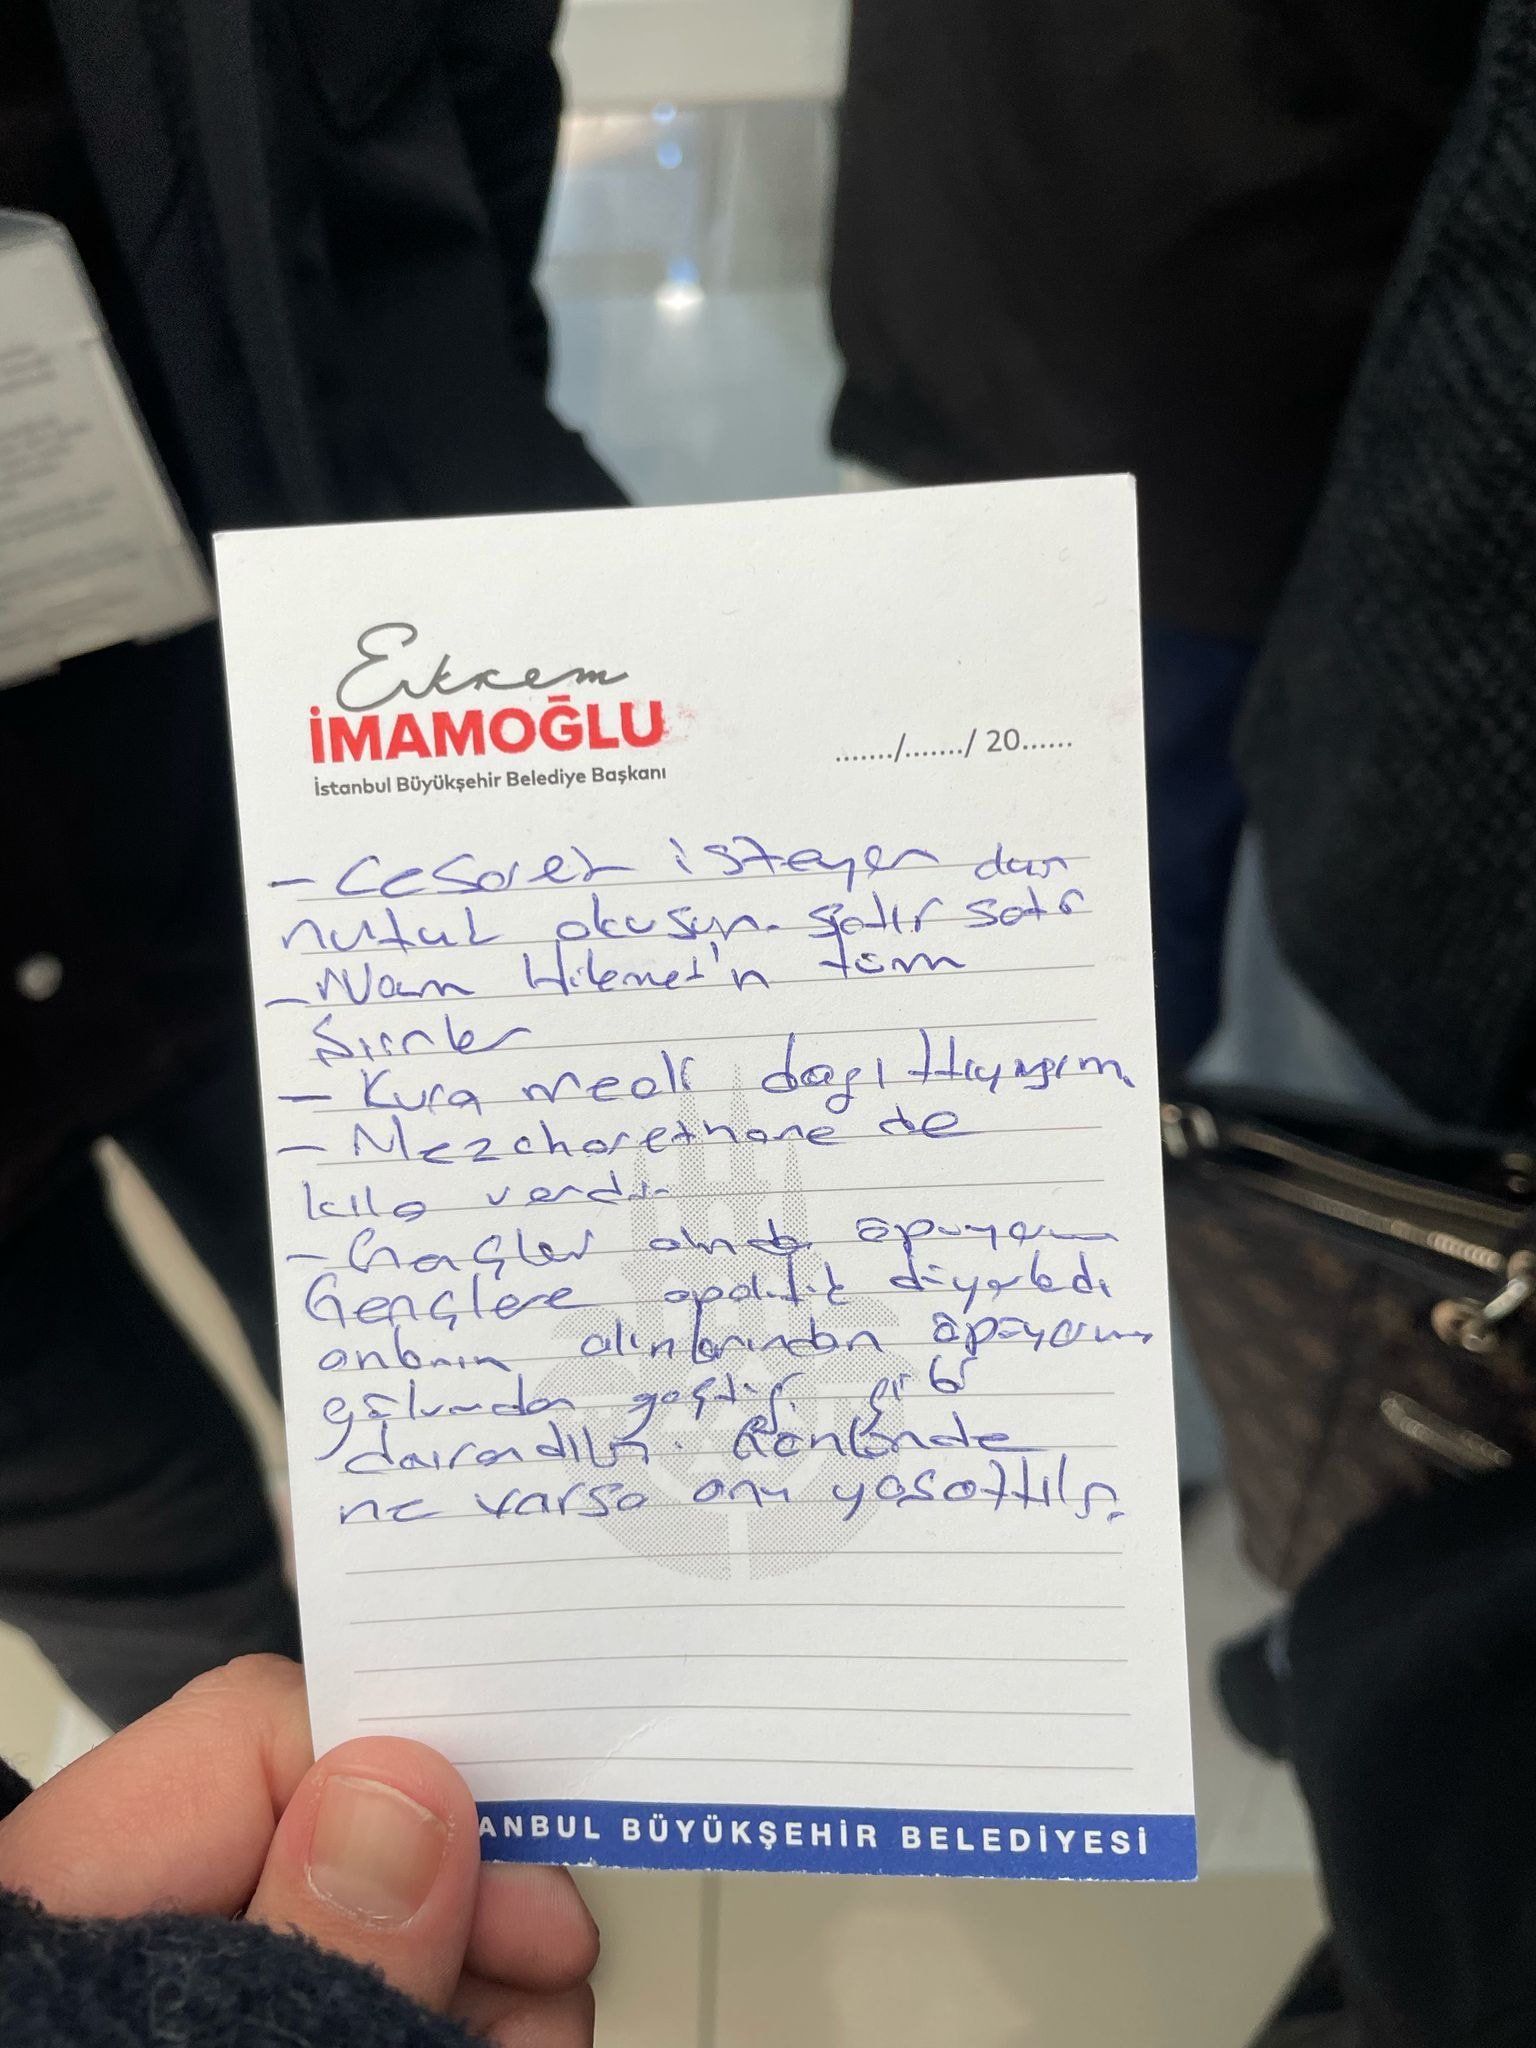 Ekrem
İMAMOĞLU
İstanbul Büyükşehir Belediye Başkanı
......./......./ 20......
- Cesaret isteyen dan
nutuk okusun. Satır satır
- Nazım Hikmet'in tüm
Şiirleri
- Kuran meali dağıttıyorum.
- Mezcharethane de
kilo verdi.
- Gençler apuyorum
Gençlere apolitik diyorlardı
onların alınlarından öpüyorum
gözlerinden geçtiği gibi
davrandılar. Gönlünde
ne varsa onu yasattılar.
ANBUL BÜYÜKŞEHİR BELEDİYESİ